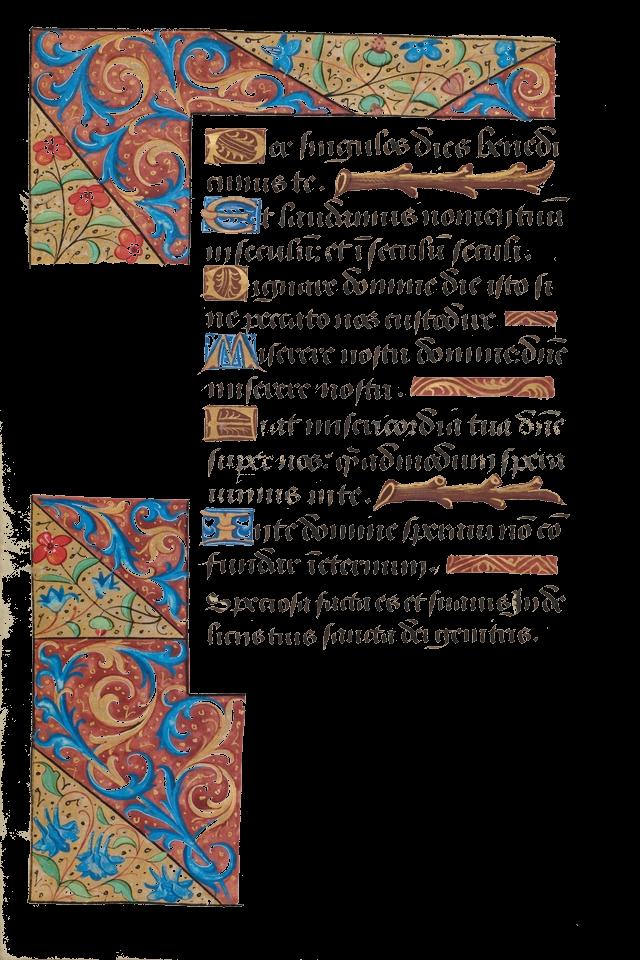 Per singulos dies benedi
cimus te.
Et laudamus nomen tuū
in seculū: et ī seculū seculi.
Dignare domine die isto si
ne peccato nos custodire
Miserere nostri domine: dn̄e
miserere nostri.
Fiat misericordia tua dn̄e
super nos: qͫadmodum spera
uimus in te.
In te domine speraui nō cō
fundar ī eternum.
Speciosa facta es et suauis In de
liciis tuis sancta dei genitrix.